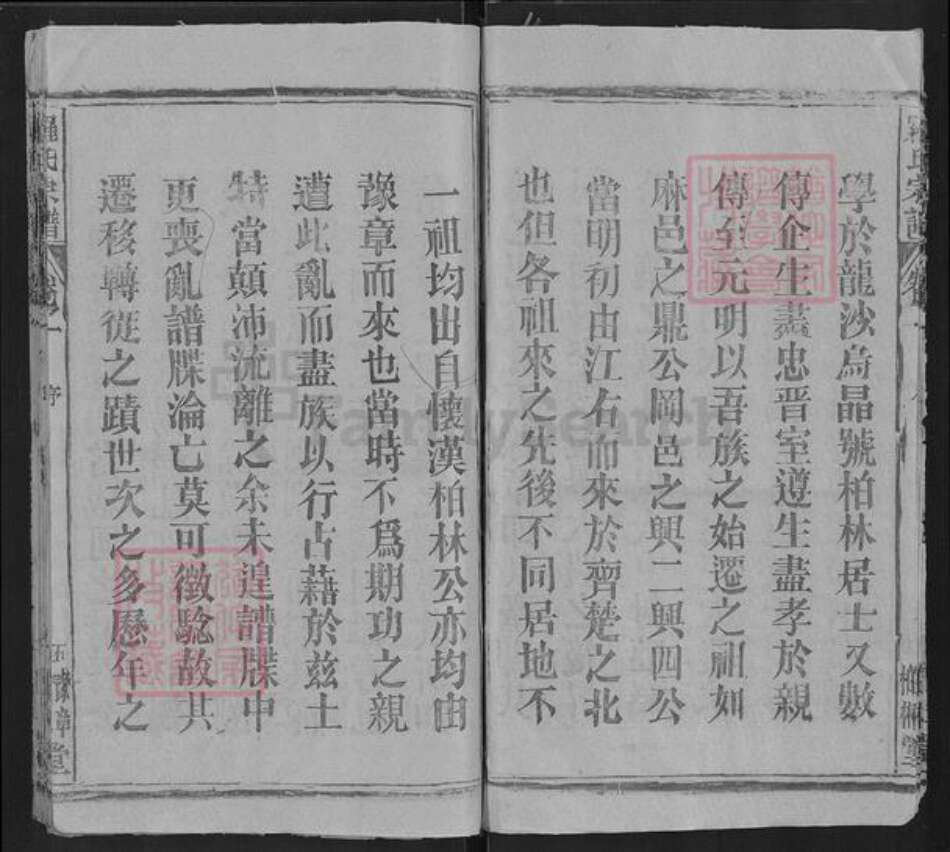 學於龍沙烏晶號柏林居士又數
傳企生藎忠晋室遵生盡孝於親
傳至元明以吾族之始遷之祖如
麻邑之鼎公岡邑之興二興四公
當明初由江右而來於齊楚之北
也但各祖來之先後不同居地不
一祖均出自懷漢柏林公亦均由
豫章而來也當時不爲期功之親
遭此亂而盡族以行占藉於兹土
特當顛沛流離之余未遑譜牒中
更喪亂譜牒淪亡莫可徵騐故其
遷移轉徙之蹟世次之多歷年之
氏宗譜
卷一
序
五
堂
FamilySearch